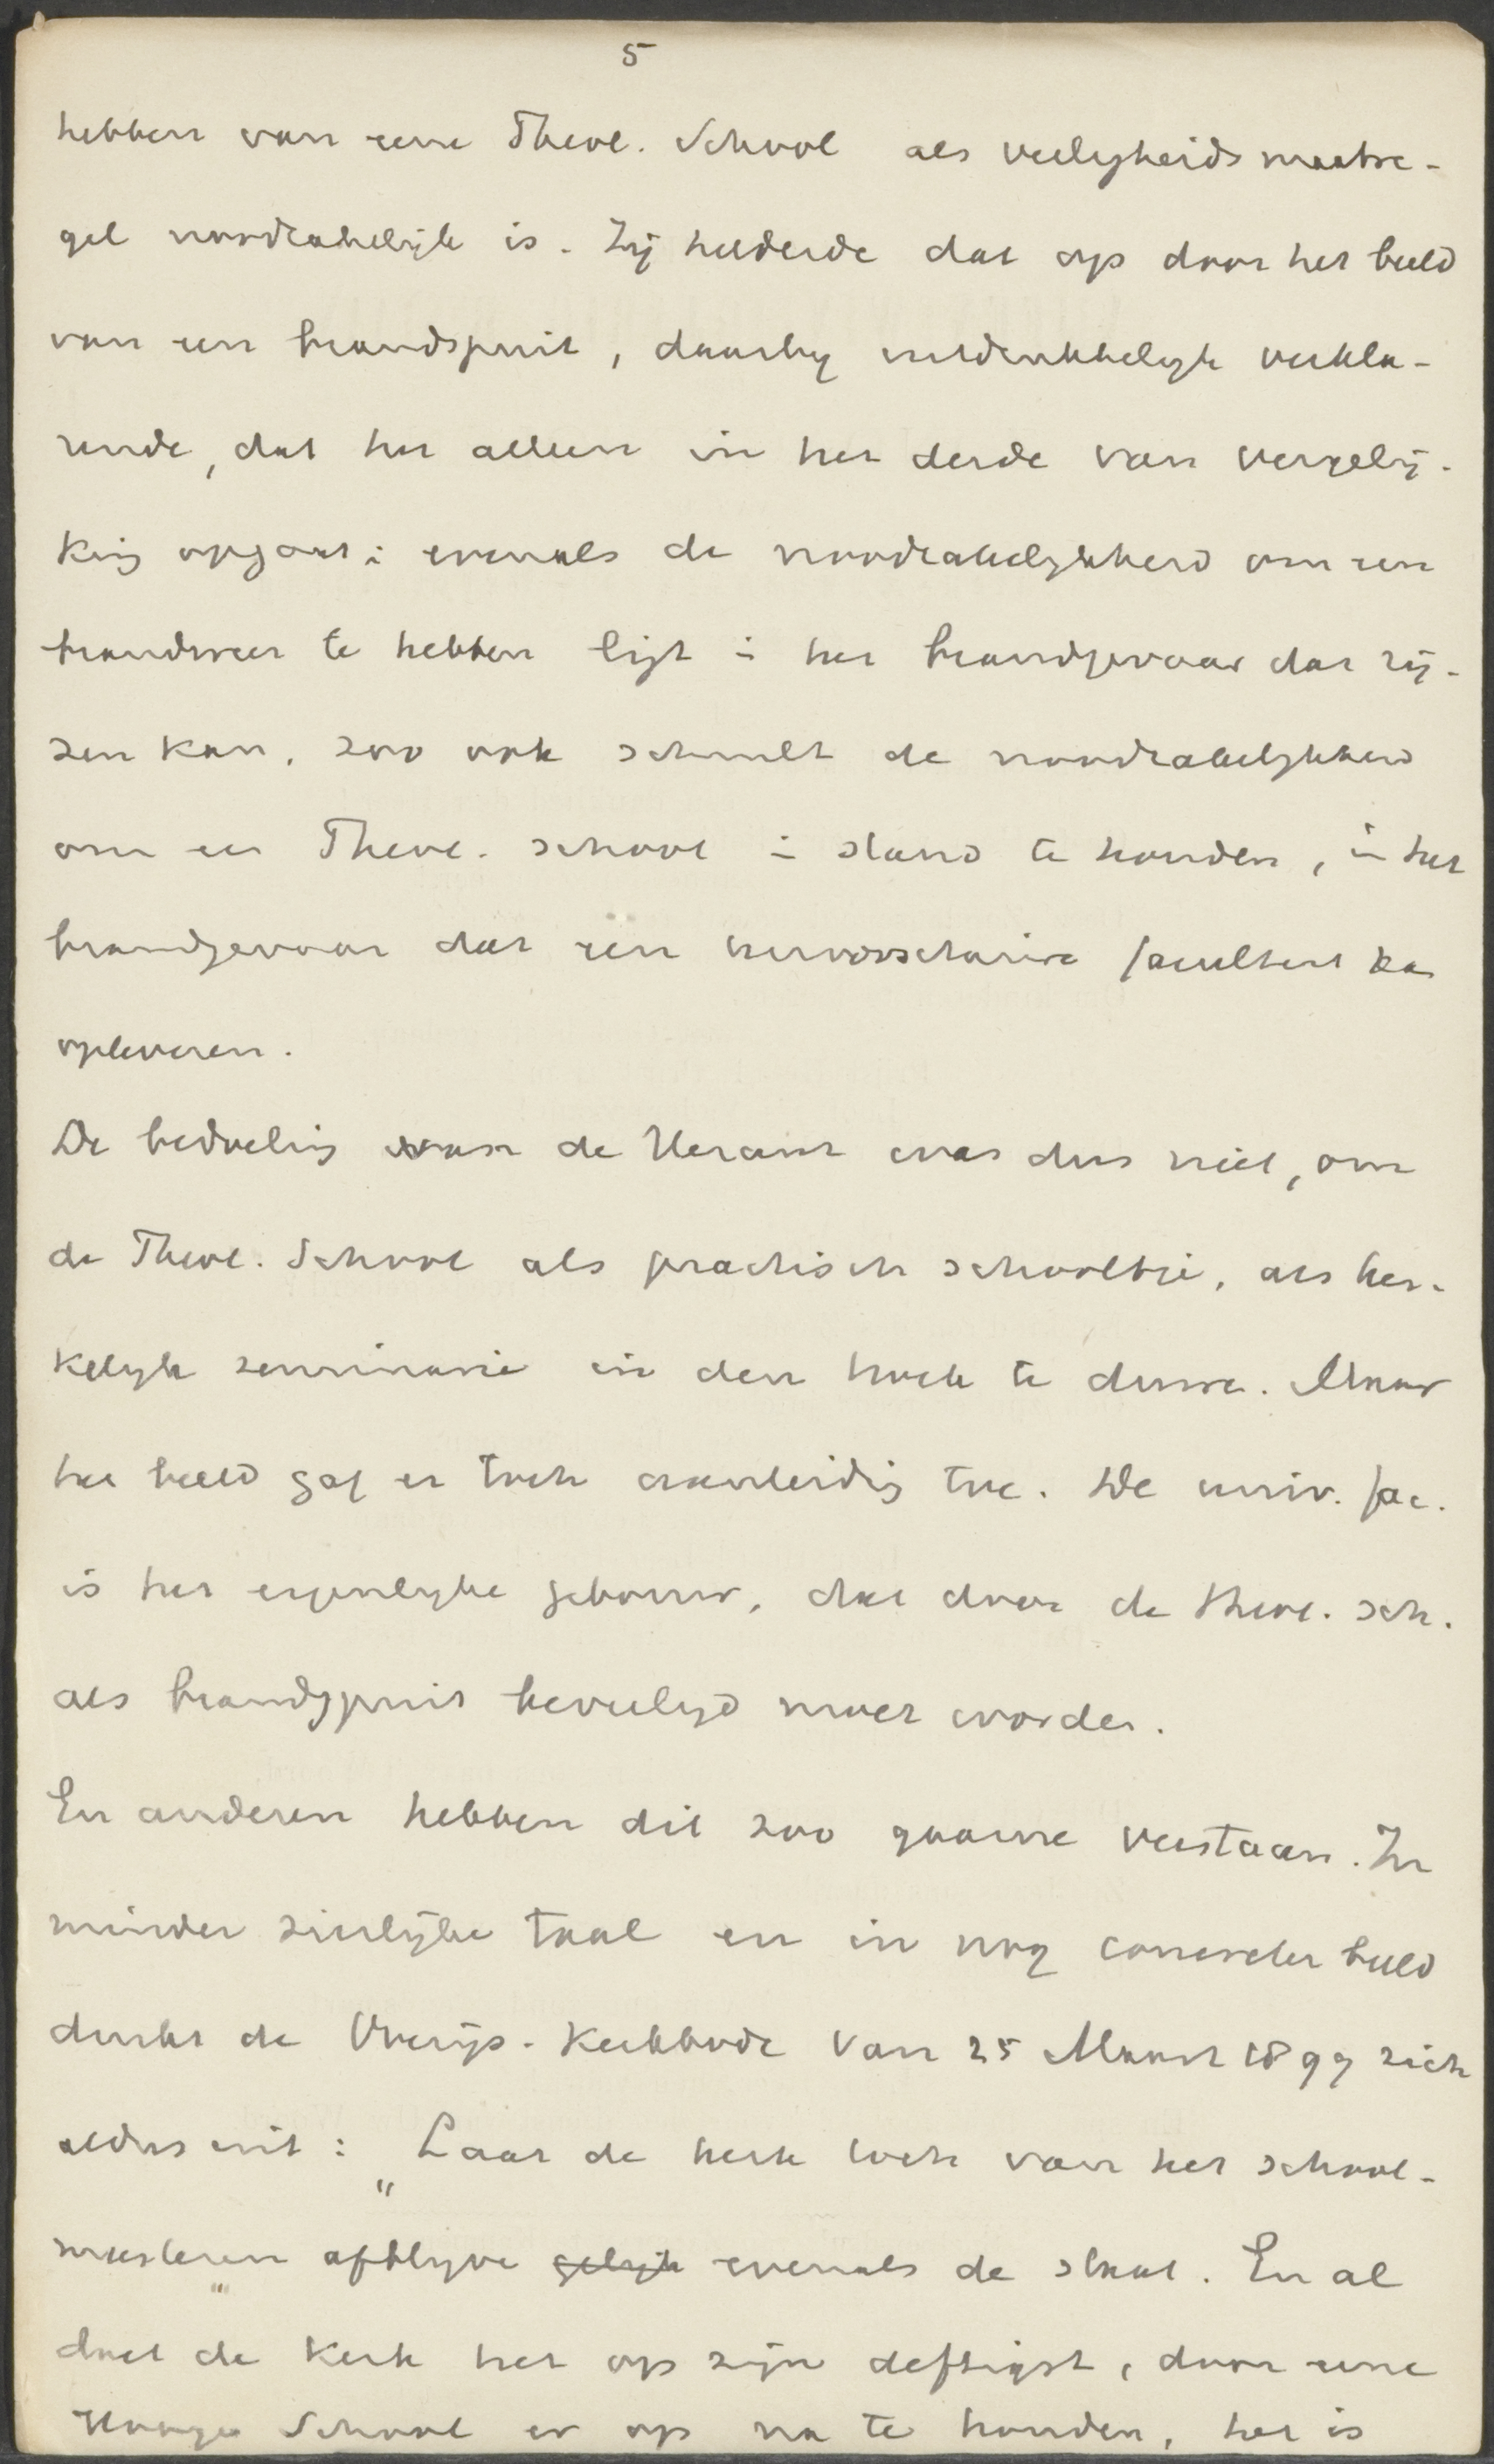 5
hebben van eene Theol. School als veiligheidsmaatre-
gel noodzakelijk is. Zij helderde dat op door het beeld
van een brandspuit, daarbij uitdrukkelijk verkla-
rende, dat het alleen in het derde van vergelij-
king opgaat: evenals de noodzakelijkheid om een
brandweer te hebben ligt in het brandgevaar dat rij-
zen kan, zoo ook schuilt de noodzakelijkheid
om een Theol. school in stand te houden, in het
brandgevaar dat een universitaire faculteit kan
opleveren.
De bedoeling van de Heraut was dus niet, om
de Theol. School als practisch schooltje, als ker-
kelijk seminarie in den hoek te duwen. Maar
het beeld gaf er toch aanleiding toe. De univ. fac.
is het eigenlijke gebouw, dat door de theol. sch.
als brandspuit beveiligd moet worden.
En anderen hebben dit zoo gaarne verstaan. In
minder sierlijke taal en in nog concreter beeld
drukt de Overijs. Kerkbode van 25 Maart 1899 zich
aldus uit: „Laat de kerk toch van het school-
meesteren afblijven gelijk evenals de staat. En al
doet de kerk het op zijn deftigst, door eene
Hooge School er op na te houden, het is